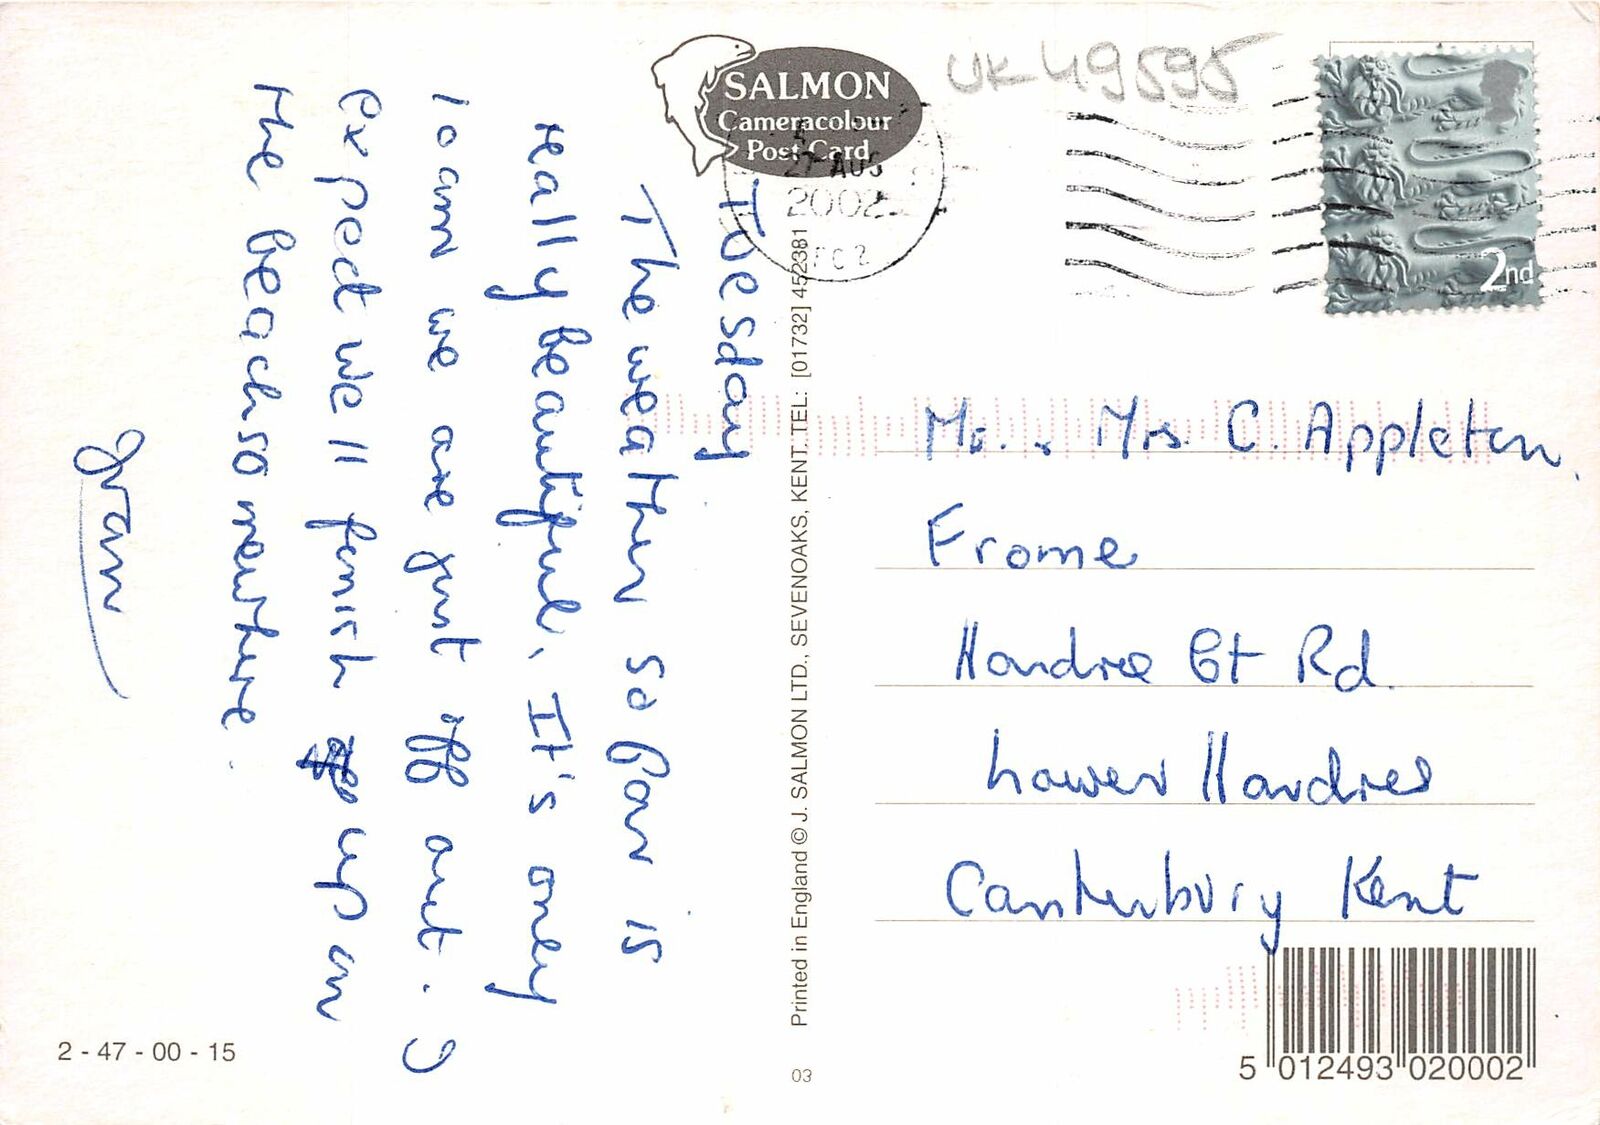 Tuesday
The weather so far is
really beautiful, It's only
10am we are just off out. I
expect we'll finish up on
the beach somewhere.
Gran
SALMON
Cameracolour
Post Card
27 AUG
2002
UK 49595
2nd
Printed in England © J. SALMON LTD., SEVENOAKS, KENT. TEL: [01732] 452381
Mr. & Mrs C. Appleton.
Frome
Hardres Ct Rd.
Lower Hardres
Canterbury Kent
2 - 47 - 00 - 15
03
5 012493 020002